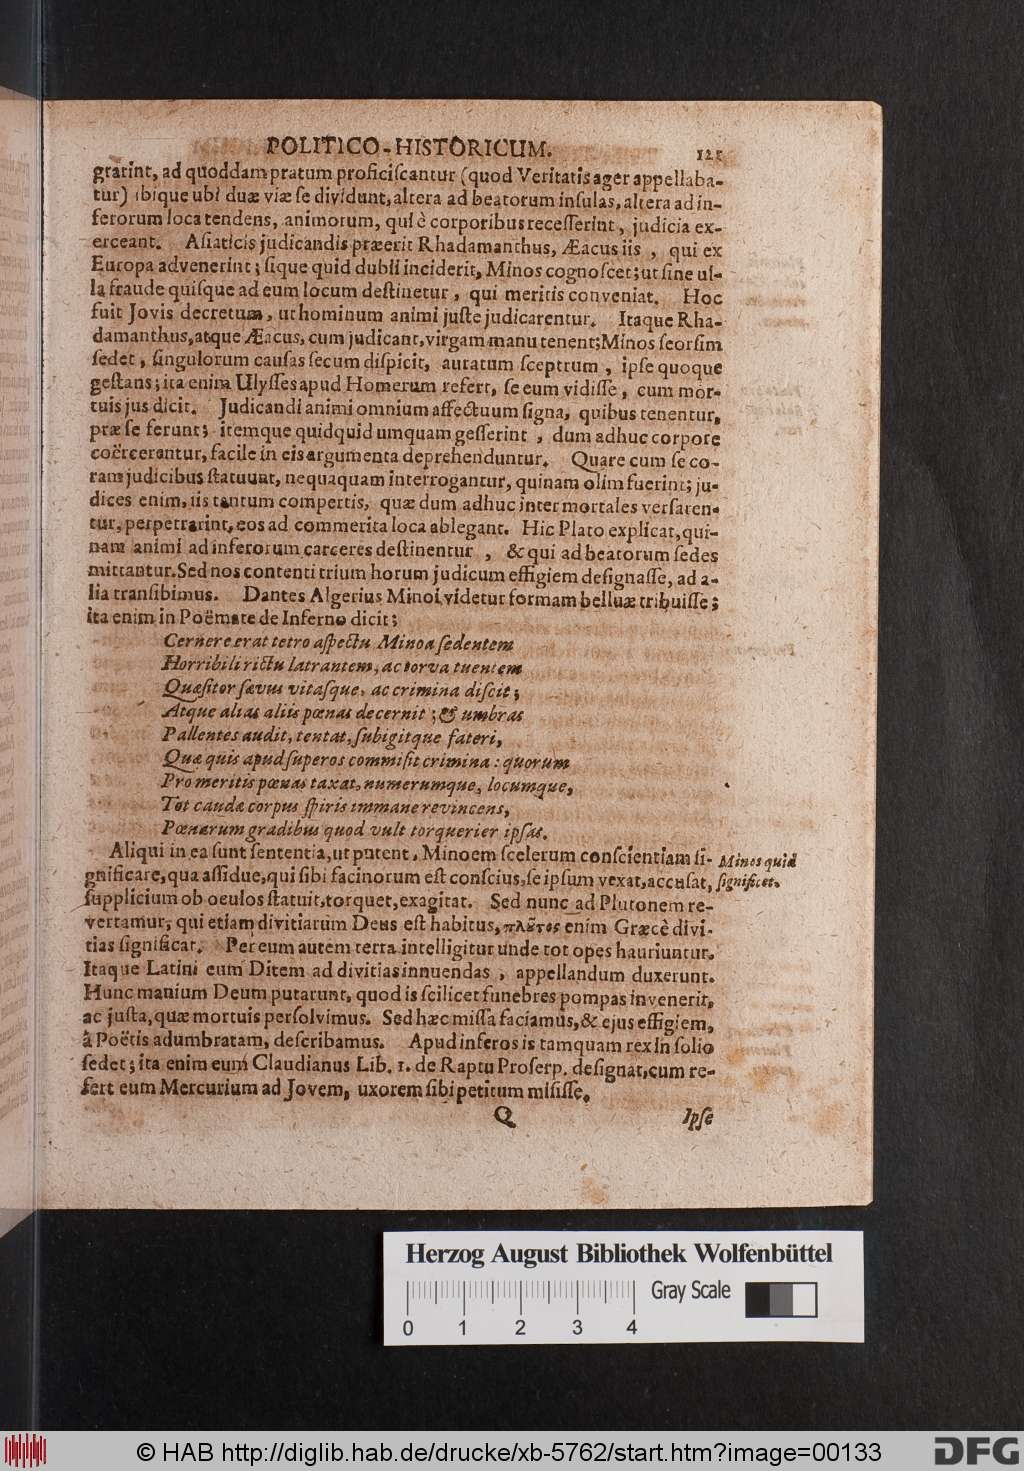 POLITICO-HISTORICUM. 121
grarint, ad quoddam pratum proficiſcantur (quod Veritatis ager appellaba-
tur) ibique ubi duæ viæ ſe dividunt, altera ad beatorum inſulas, altera ad in-
ferorum loca tendens, animorum, qui è corporibus receſſerint, judicia ex-
erceant. Aſiaticis judicandis præerit Rhadamanthus, Æacus iis, qui ex
Europa advenerint; ſique quid dubii inciderit, Minos cognoſcet; ut ſine ul-
la fraude quiſque ad eum locum deſtinetur, qui meritis conveniat. Hoc
fuit Jovis decretum, ut hominum animi juſte judicarentur. Itaque Rha-
damanthus, atque Æacus, cum judicant, virgam manu tenent; Minos ſeorſim
ſedet, ſingulorum cauſas ſecum diſpicit, auratum ſceptrum, ipſe quoque
geſtans; ita enim Ulyſſes apud Homerum refert, ſe eum vidiſſe, cum mor-
tuis jus dicit. Judicandi animi omnium affectuum ſigna, quibus tenentur,
præ ſe ferunt; itemque quidquid umquam geſſerint, dum adhuc corpore
coërcerentur, facile in eis argumenta deprehenduntur. Quare cum ſe co-
ram judicibus ſtatuunt, nequaquam interrogantur, quinam olim fuerint; ju-
dices enim, iis tantum compertis, quæ dum adhuc inter mortales verſaren-
tur, perpetrarint, eos ad commerita loca ablegant. Hic Plato explicat, qui-
nam animi ad inferorum carceres deſtinentur, & qui ad beatorum ſedes
mittantur. Sed nos contenti trium horum judicum effigiem deſignaſſe, ad a-
lia tranſibimus. Dantes Algerius Minoi videtur formam belluæ tribuiſſe;
ita enim in Poëmate de Inferno dicit;
Cernere erat tetro aſpectu Minoa ſedentem
Horribili rictu latrantem, ac torva tuentem
Quæſitor ſævus vitaſque, ac crimina diſcit;
Atque alias aliis pœnas decernit; & umbras
Pallentes audit, tentat, ſubigitque fateri,
Quæ quis apud ſuperos commiſit crimina: quorum
Pro meritis pœnas taxat, numerumque, locumque,
Tot cauda corpus ſpiris immane revincens,
Pœnarum gradibus quod vult torquerier ipſas.
Aliqui in ea ſunt ſententia, ut putent, Minoem ſcelerum conſcientiam ſi-
Minos quid
gnificare, qua aſſidue, qui ſibi facinorum eſt conſcius, ſe ipſum vexat, accuſat,
ſignificet.
ſupplicium ob oculos ſtatuit, torquet, exagitat. Sed nunc ad Plutonem re-
vertamur, qui etiam divitiarum Deus eſt habitus, πλȣ̃τος enim Græcè divi-
tias ſignificat. Per eum autem terra intelligitur unde tot opes hauriuntur.
Itaque Latini eum Ditem ad divitias innuendas, appellandum duxerunt.
Hunc manium Deum putarunt, quod is ſcilicet funebres pompas invenerit,
ac juſta, quæ mortuis perſolvimus. Sed hæc miſſa faciamus, & ejus effigiem,
â Poëtis adumbratam, deſcribamus. Apud inferos is tamquam rex in ſolio
ſedet; ita enim eum Claudianus Lib. 1. de Raptu Proſerp. deſignat, cum re-
fert eum Mercurium ad Jovem, uxorem ſibi petitum miſiſſe.
Q Ipſe
Herzog August Bibliothek Wolfenbüttel
Gray Scale
0 1 2 3 4
© HAB http://diglib.hab.de/drucke/xb-5762/start.htm?image=00133
DFG